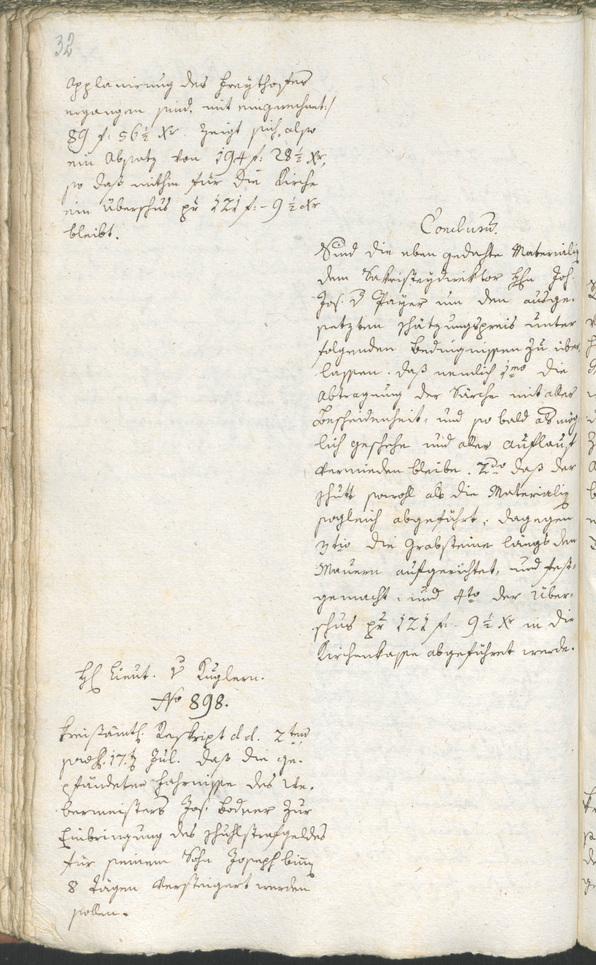 32
Applanirung des Freythofes
ergangen sind, mit eingerechnet
89 f: 56½ Xr. zeigt sich also
ein Absatz von 194 f: 28½ Xr,
so daß mithin für die Kirche
ein Überschus pr 121 f: - 9½ Xr
bleibt.
Conclusum.
Sind die eben gedachte Materialien
dem Sakristeydirektor Hn Joh.
Jos. v Payer um den ausge-
setzten Schätzungspreis unter
folgenden Bedingnissen zu über-
lassen. daß nemlich 1mo die
Abtragung der Kirche mit aller
Bescheidenheit, und so bald als mög-
lich geschehe und aller Auflauf
vermieden bleibe. 2do daß der
Schutt sowohl als die Materialien
sogleich abgeführt, dagegen
3tio die Grabsteine längs den
Mauern aufgerichtet, und fest-
gemacht, und 4to der Über-
schus pr 121 f - 9½ Xr in die
Kirchenkasse abgeführet werde.
H Lieut. v Kuglern.
No 898.
Kreisämtl. Reskript dd. 2ten
praes. 17. Jul. daß die ge-
pfändeten Fahrnisse des We-
bermeisters Jos. Bodner zur
Einbringung des Schuhlstrafgeldes
für seinem Sohn Joseph binnen
8 Tägen versteigert werden
sollen.